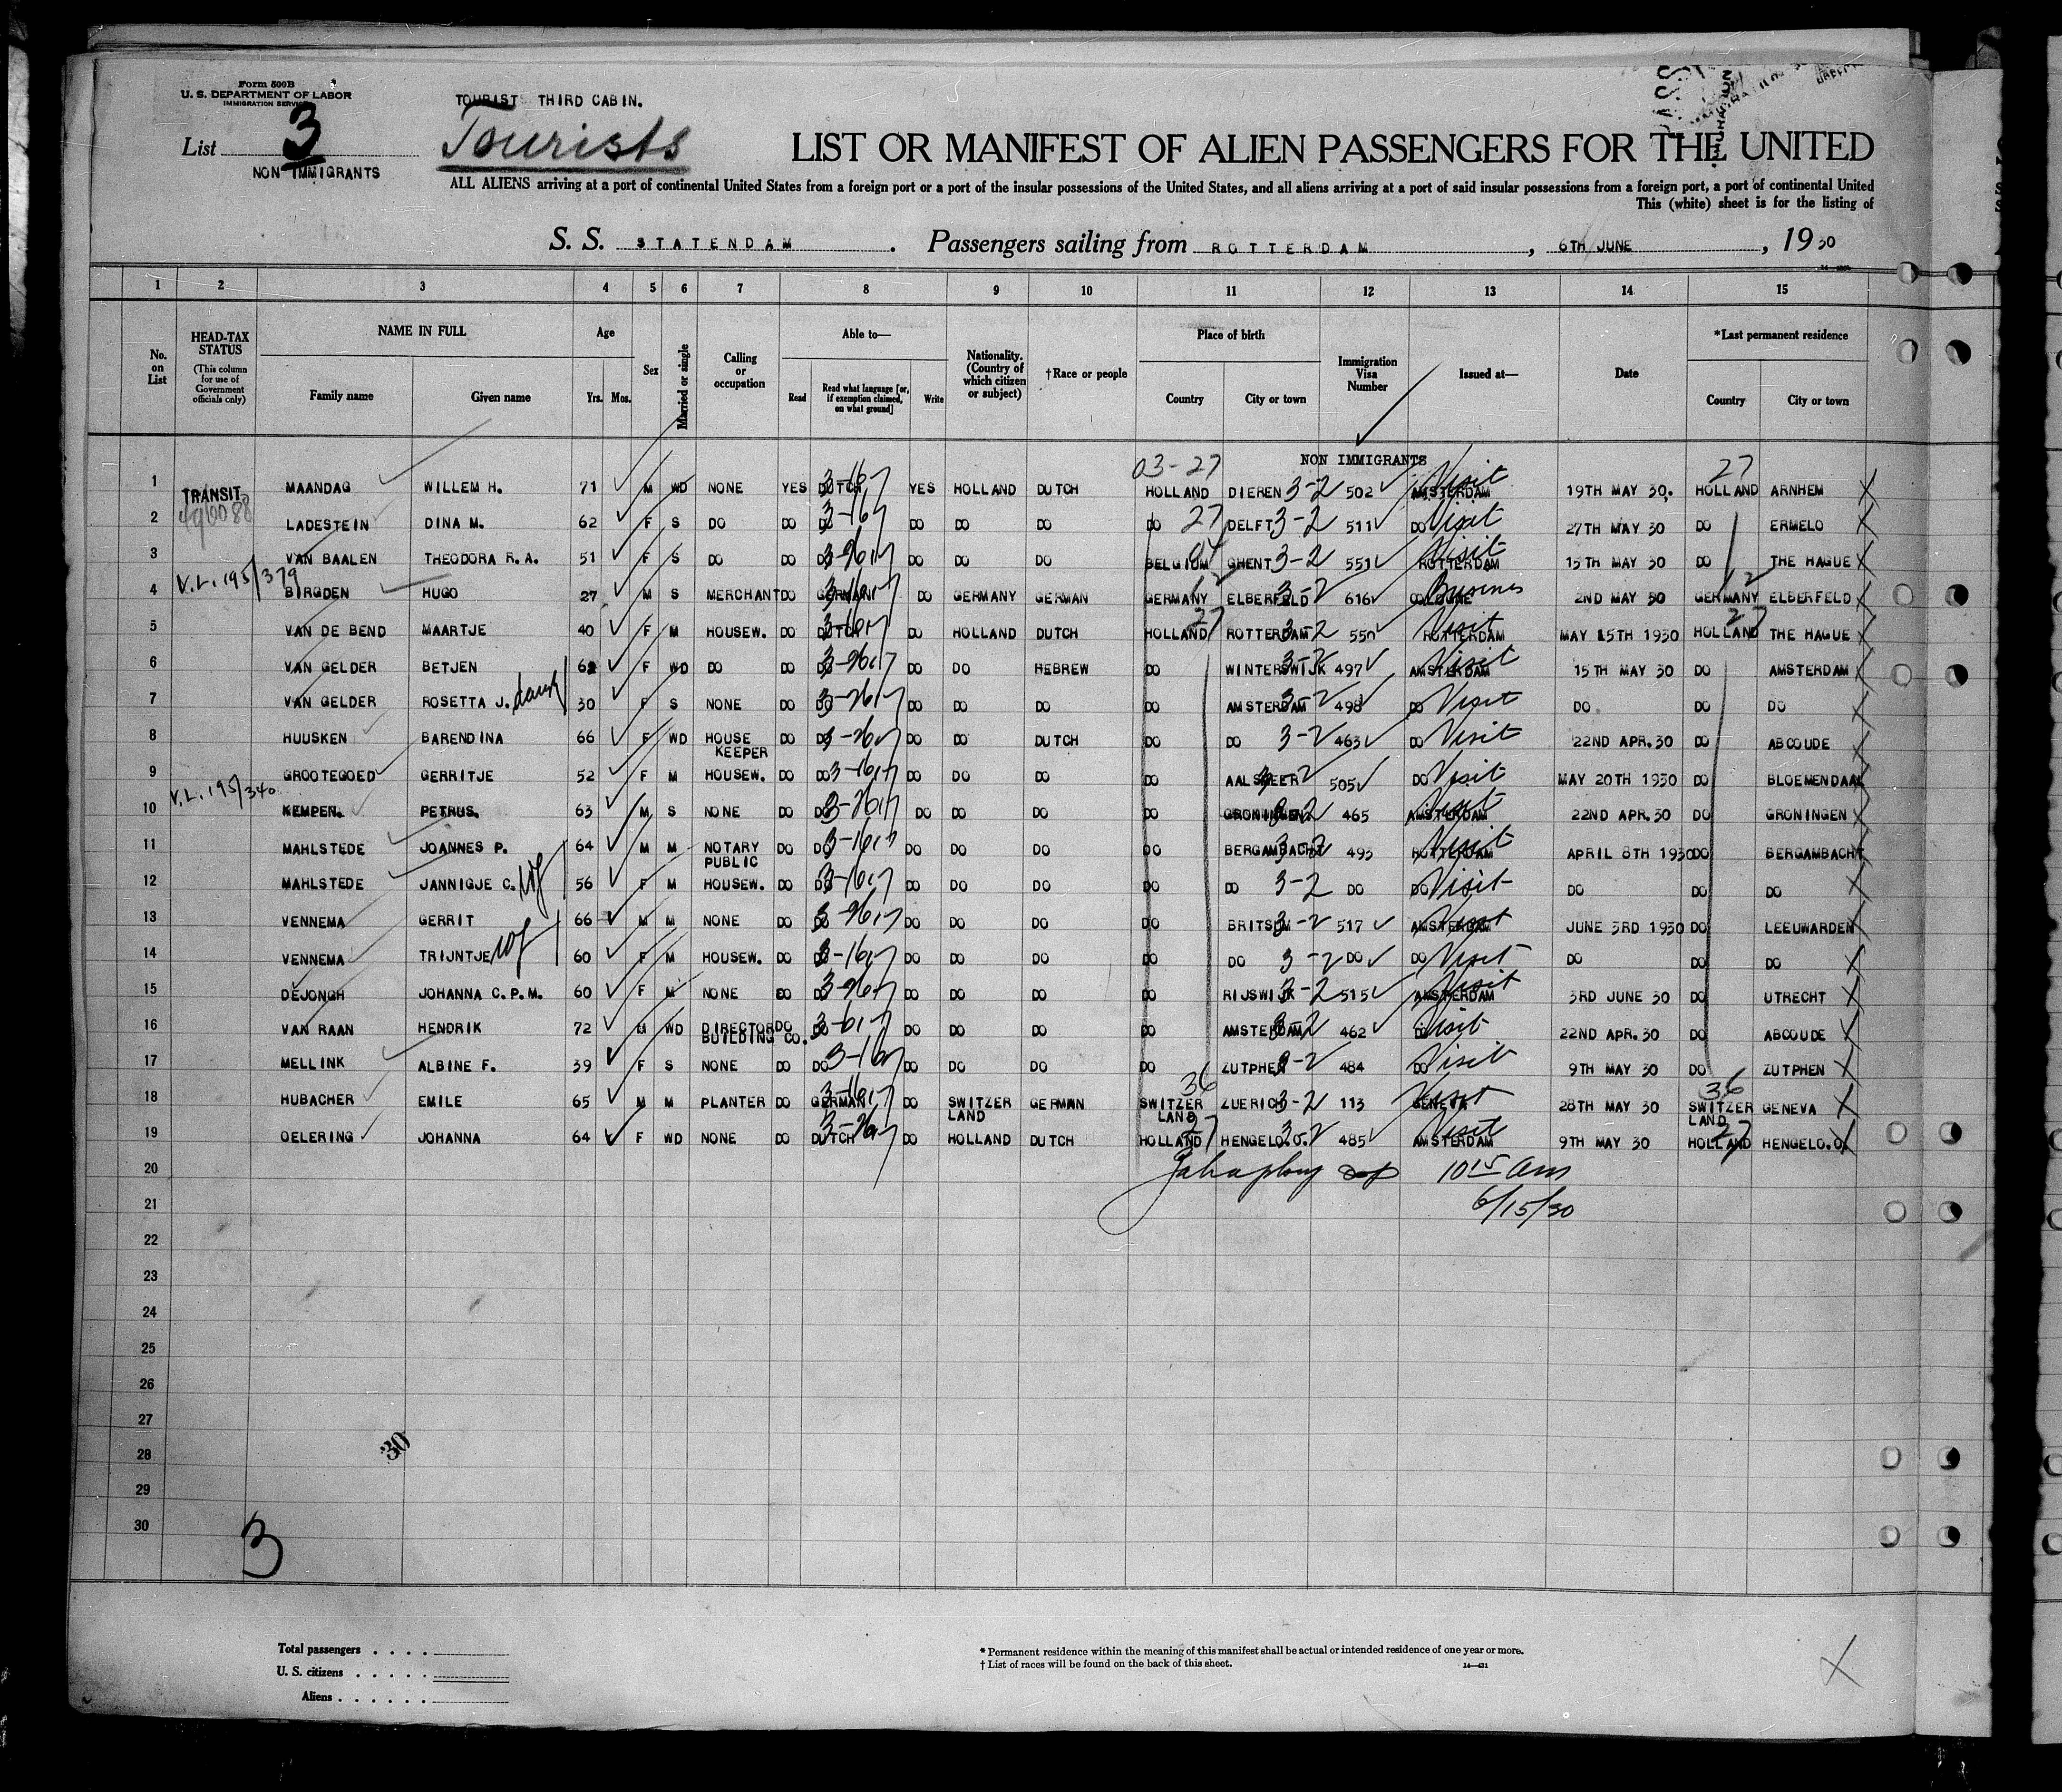 Form 500B
U. S. DEPARTMENT OF LABOR
IMMIGRATION SERVICE
List 3
NON IMMIGRANTS
TOURIST THIRD CABIN.
Tourists
LIST OR MANIFEST OF ALIEN PASSENGERS FOR THE UNITED
ALL ALIENS arriving at a port of continental United States from a foreign port or a port of the insular possessions of the United States, and all aliens arriving at a port of said insular possessions from a foreign port, a port of continental United
This (white) sheet is for the listing of
S. S. STATENDAM. Passengers sailing from ROTTERDAM, 6TH JUNE, 1930
1 2 3 4 5 6 7 8 9 10 11 12 13 14 15
No. on List
HEAD-TAX STATUS (This column for use of Government officials only)
NAME IN FULL Family name Given name
Age Yrs. Mos.
Sex
Married or single
Calling or occupation
Able to— Read Read what language [or, if exemption claimed, on what ground] Write
Nationality. (Country of which citizen or subject)
†Race or people
Place of birth Country City or town
Immigration Visa Number
Issued at—
Date
*Last permanent residence Country City or town
03-27 NON IMMIGRANTS 27
1 TRANSIT MAANDAG WILLEM H. 71 M WD NONE YES DUTCH YES HOLLAND DUTCH HOLLAND DIEREN 3-2 502 AMSTERDAM Visit 19TH MAY 30. HOLLAND ARNHEM
2 LADESTEIN DINA M. 62 F S DO DO DO DO DO DO DO 27 DELFT 3-2 511 DO Visit 27TH MAY 30 DO ERMELO
3 VAN BAALEN THEODORA R.A. 51 F S DO DO DO DO DO DO BELGIUM GHENT 3-2 551 ROTTERDAM Visit 15TH MAY 30 DO THE HAGUE
V.L. 195/379
4 BIRGDEN HUGO 27 M S MERCHANT DO GERMAN DO GERMANY GERMAN GERMANY ELBERFELD 3-2 616 COLOGNE Business 2ND MAY 30 GERMANY ELBERFELD
5 VAN DE BEND MAARTJE 40 F M HOUSEW. DO DUTCH DO HOLLAND DUTCH HOLLAND 27 ROTTERDAM 3-2 550 ROTTERDAM Visit MAY 15TH 1930 HOLLAND 27 THE HAGUE
6 VAN GELDER BETJEN 62 F WD DO DO DO DO DO HEBREW DO WINTERSWIJK 3-2 497 AMSTERDAM Visit 15TH MAY 30 DO AMSTERDAM
7 VAN GELDER ROSETTA J. daug 30 F S NONE DO DO DO DO DO DO AMSTERDAM 3-2 498 DO Visit DO DO DO
8 HUUSKEN BARENDINA 66 F WD HOUSE KEEPER DO DO DO DO DUTCH DO DO 3-2 463 DO Visit 22ND APR.30 DO ABCOUDE
9 GROOTEGOED GERRITJE 52 F M HOUSEW. DO DO DO DO DO DO AALSMEER 3-2 505 DO Visit MAY 20TH 1930 DO BLOEMENDAAL
V.L. 195/340
10 KEMPEN. PETRUS. 63 M S NONE DO DO DO DO DO DO GRONINGEN 3-2 465 AMSTERDAM Visit 22ND APR.30 DO GRONINGEN
11 MAHLSTEDE JOANNES P. 64 M M NOTARY PUBLIC DO DO DO DO DO DO BERGAMBACHT 3-2 493 ROTTERDAM Visit APRIL 8TH 1930 DO BERGAMBACHT
12 MAHLSTEDE JANNIGJE C. wf 56 F M HOUSEW. DO DO DO DO DO DO DO 3-2 DO DO Visit DO DO DO
13 VENNEMA GERRIT 66 M M NONE DO DO DO DO DO DO BRITSUM 3-2 517 AMSTERDAM Visit JUNE 3RD 1930 DO LEEUWARDEN
14 VENNEMA TRIJNTJE wf 60 F M HOUSEW. DO DO DO DO DO DO DO 3-2 DO DO Visit DO DO DO
15 DEJONGH JOHANNA C.P.M. 60 F M NONE DO DO DO DO DO DO RIJSWIJK 3-2 515 AMSTERDAM Visit 3RD JUNE 30 DO UTRECHT
16 VAN RAAN HENDRIK 72 M WD DIRECTOR BUILDING CO. DO DO DO DO DO DO AMSTERDAM 3-2 462 DO Visit 22ND APR.30 DO ABCOUDE
17 MELLINK ALBINE F. 39 F S NONE DO DO DO DO DO DO ZUTPHEN 3-2 484 DO Visit 9TH MAY 30 DO ZUTPHEN
18 HUBACHER EMILE 65 M M PLANTER DO GERMAN DO SWITZER LAND GERMAN SWITZER LAND 36 ZUERICH 3-2 113 GENEVA Visit 28TH MAY 30 SWITZER LAND 36 GENEVA
19 OELERING JOHANNA 64 F WD NONE DO DUTCH DO HOLLAND DUTCH HOLLAND 27 HENGELO.O. 3-2 485 AMSTERDAM Visit 9TH MAY 30 HOLLAND 27 HENGELO.O.
20 10 15 Am
21 6/15/30
22
23
24
25
26
27
28
29
30
30
3
Total passengers
U. S. citizens
Aliens
* Permanent residence within the meaning of this manifest shall be actual or intended residence of one year or more.
† List of races will be found on the back of this sheet.